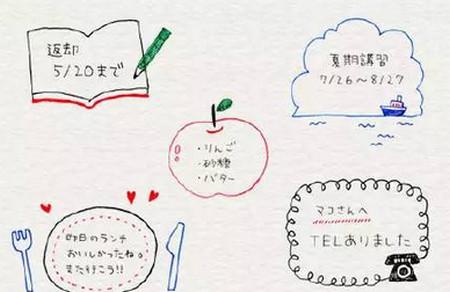 返却
5/20まで
夏期講習
7/26～8/27
・りんご
・砂糖
・バター
昨日のランチ
おいしかったね。
また行こう!!
マコさんへ
TELありました